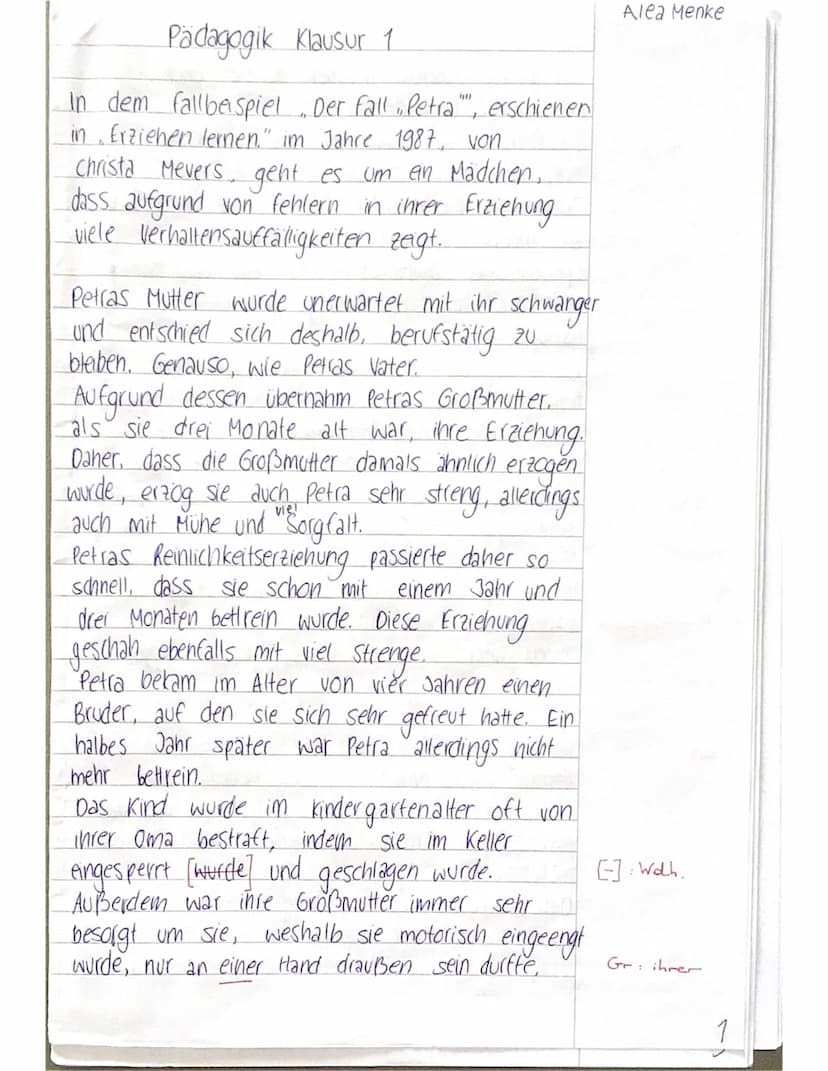 Alea Menke
Pädagogik Klausur 1
In dem Fallbeispiel „Der Fall „Petra"", erschienen
in „Erziehen lernen." im Jahre 1987, von
Christa Mevers, geht es um ein Mädchen,
dass aufgrund von Fehlern in ihrer Erziehung
viele Verhaltensauffälligkeiten zeigt.
Petras Mutter wurde unerwartet mit ihr schwanger
und entschied sich deshalb, berufstätig zu
bleiben. Genauso, wie Petras Vater.
Aufgrund dessen übernahm Petras Großmutter,
als sie drei Monate alt war, ihre Erziehung.
Daher, dass die Großmutter damals ähnlich erzogen
wurde, erzog sie auch Petra sehr streng, allerdings
auch mit Mühe und viel Sorgfalt.
Petras Reinlichkeitserziehung passierte daher so
schnell, dass sie schon mit einem Jahr und
drei Monaten bettrein wurde. Diese Erziehung
geschah ebenfalls mit viel Strenge.
Petra bekam im Alter von vier Jahren einen
Bruder, auf den sie sich sehr gefreut hatte. Ein
halbes Jahr später war Petra allerdings nicht
mehr bettrein.
Das Kind wurde im Kindergartenalter oft von
ihrer Oma bestraft, indem sie im Keller
eingesperrt [wurde] und geschlagen wurde. [-] : Wdh.
Außerdem war ihre Großmutter immer sehr
besorgt um sie, weshalb sie motorisch eingeengt
wurde, nur an einer Hand draußen sein durfte, Gr : ihrer
1